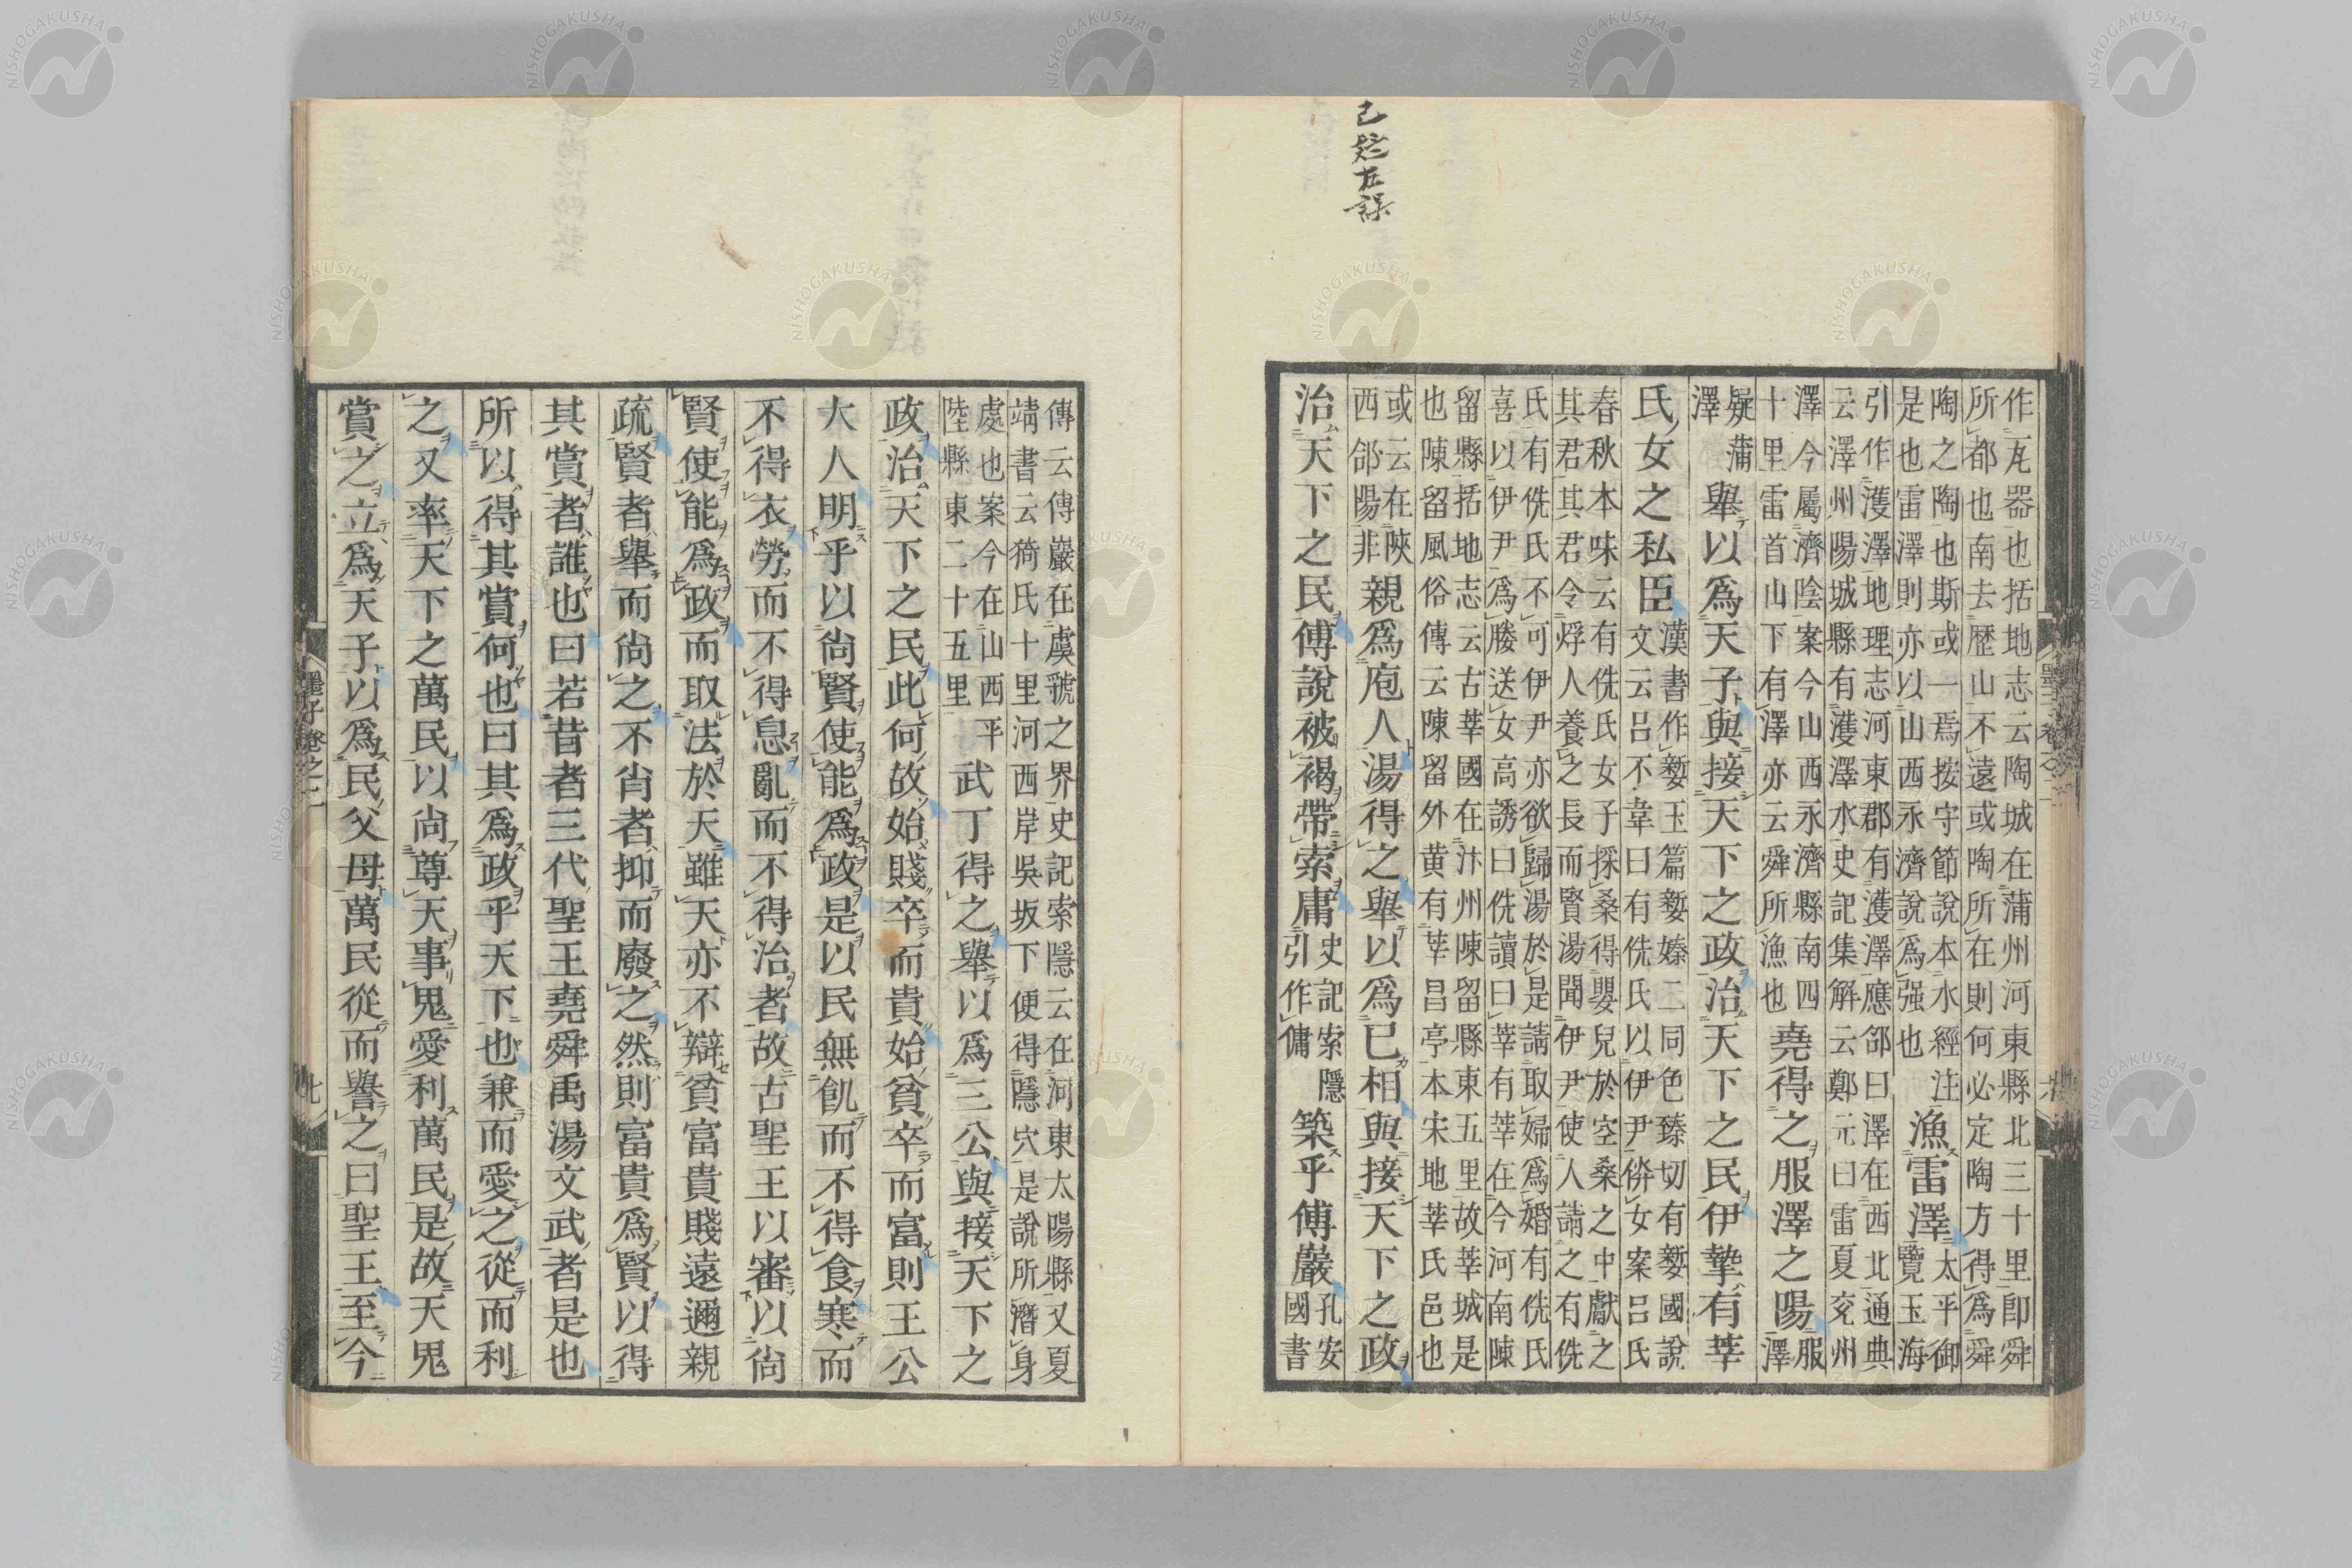 作瓦器也括地志云陶城在蒲州河東縣北三十里卽舜
所都也南去歷山不遠或陶所在則何必定陶方得爲舜
陶之陶也斯或一焉按守節說本水經注
是也雷澤則亦以山西永濟說爲强也
漁雷澤
太平御
覽玉海
引作濩澤地理志河東郡有濩澤應邵曰澤在西北通典
云澤州陽城縣有濩澤水史記集解云鄭元曰雷夏兗州
澤今屬濟陰案今山西永濟縣南四
十里雷首山下有澤亦云舜所漁也
堯得之服澤之陽
服
澤
疑蒲
澤
舉以爲天子與接天下之政治天下之民伊摯有莘
氏女之私臣
漢書作㜪玉篇㜪㜪二同色臻切有㜪國說
文云呂不韋曰有侁氏以伊尹倂女案呂氏
春秋本味云有侁氏女子採桑得嬰兒於空桑之中獻之
其君其君令烰人養之長而賢湯聞伊尹使人請之有侁
氏有侁氏不可伊尹亦欲歸湯於是請取婦爲婚有侁氏
喜以伊尹爲媵送女高誘曰侁讀曰莘有莘在今河南陳
留縣括地志云古莘國在汴州陳留縣東五里故莘城是
也陳留風俗傳云陳留外黃有莘昌亭本宋地莘氏邑也
或云在陝
西郃陽非
親爲庖人湯得之舉以爲已相與接天下之政
治天下之民傅說被褐帶索庸
史記索隱
引作傭
築乎傅巖
孔安
國書
已疑左誤
傳云傅巖在虞虢之界史記索隱云在河東太陽縣又夏
靖書云猗氏十里河西岸吳坂下便得隱穴是說所潛身
處也案今在山西平
陸縣東二十五里
武丁得之舉以爲三公與接天下之
政治天下之民此何故始賤卒而貴始貧卒而富則王公
大人明乎以尙賢使能爲政是以民無飢而不得食寒而
不得衣勞而不得息亂而不得治者故古聖王以審以尙
賢使能爲政而取法於天雖天亦不辯貧富貴賤遠邇親
疏賢者舉而尙之不肖者抑而廢之然則富貴爲賢以得
其賞者誰也曰若昔者三代聖王堯舜禹湯文武者是也
所以得其賞何也曰其爲政乎天下也兼而愛之從而利
之又率天下之萬民以尙尊天事鬼愛利萬民是故天鬼
賞之立爲天子以爲民父母萬民從而譽之曰聖王至今
墨子卷之二
七